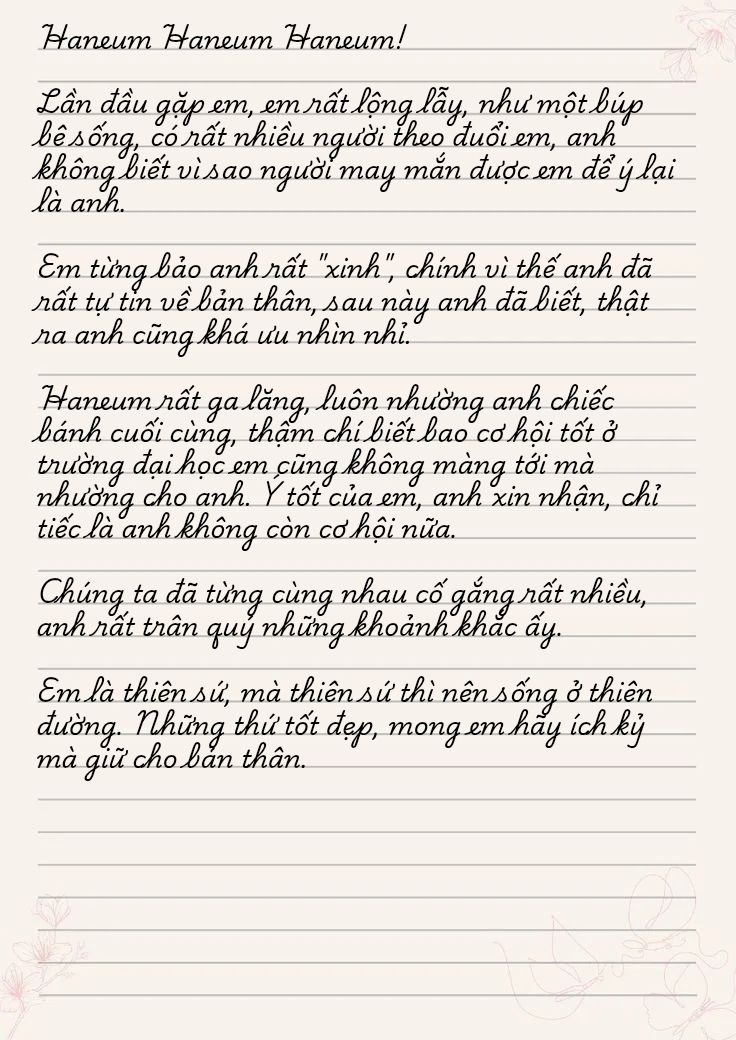 Haneum Haneum Haneum!
Lần đầu gặp em, em rất lộng lẫy, như một búp
bê sống, có rất nhiều người theo đuổi em, anh
không biết vì sao người may mắn được em để ý lại
là anh.
Em từng bảo anh rất "xinh", chính vì thế anh đã
rất tự tin về bản thân, sau này anh đã biết, thật
ra anh cũng khá ưu nhìn nhỉ.
Haneum rất ga lăng, luôn nhường anh chiếc
bánh cuối cùng, thậm chí biết bao cơ hội tốt ở
trường đại học em cũng không màng tới mà
nhường cho anh. Ý tốt của em, anh xin nhận, chỉ
tiếc là anh không còn cơ hội nữa.
Chúng ta đã từng cùng nhau cố gắng rất nhiều,
anh rất trân quý những khoảnh khắc ấy.
Em là thiên sứ, mà thiên sứ thì nên sống ở thiên
đường. Những thứ tốt đẹp, mong em hãy ích kỷ
mà giữ cho bản thân.